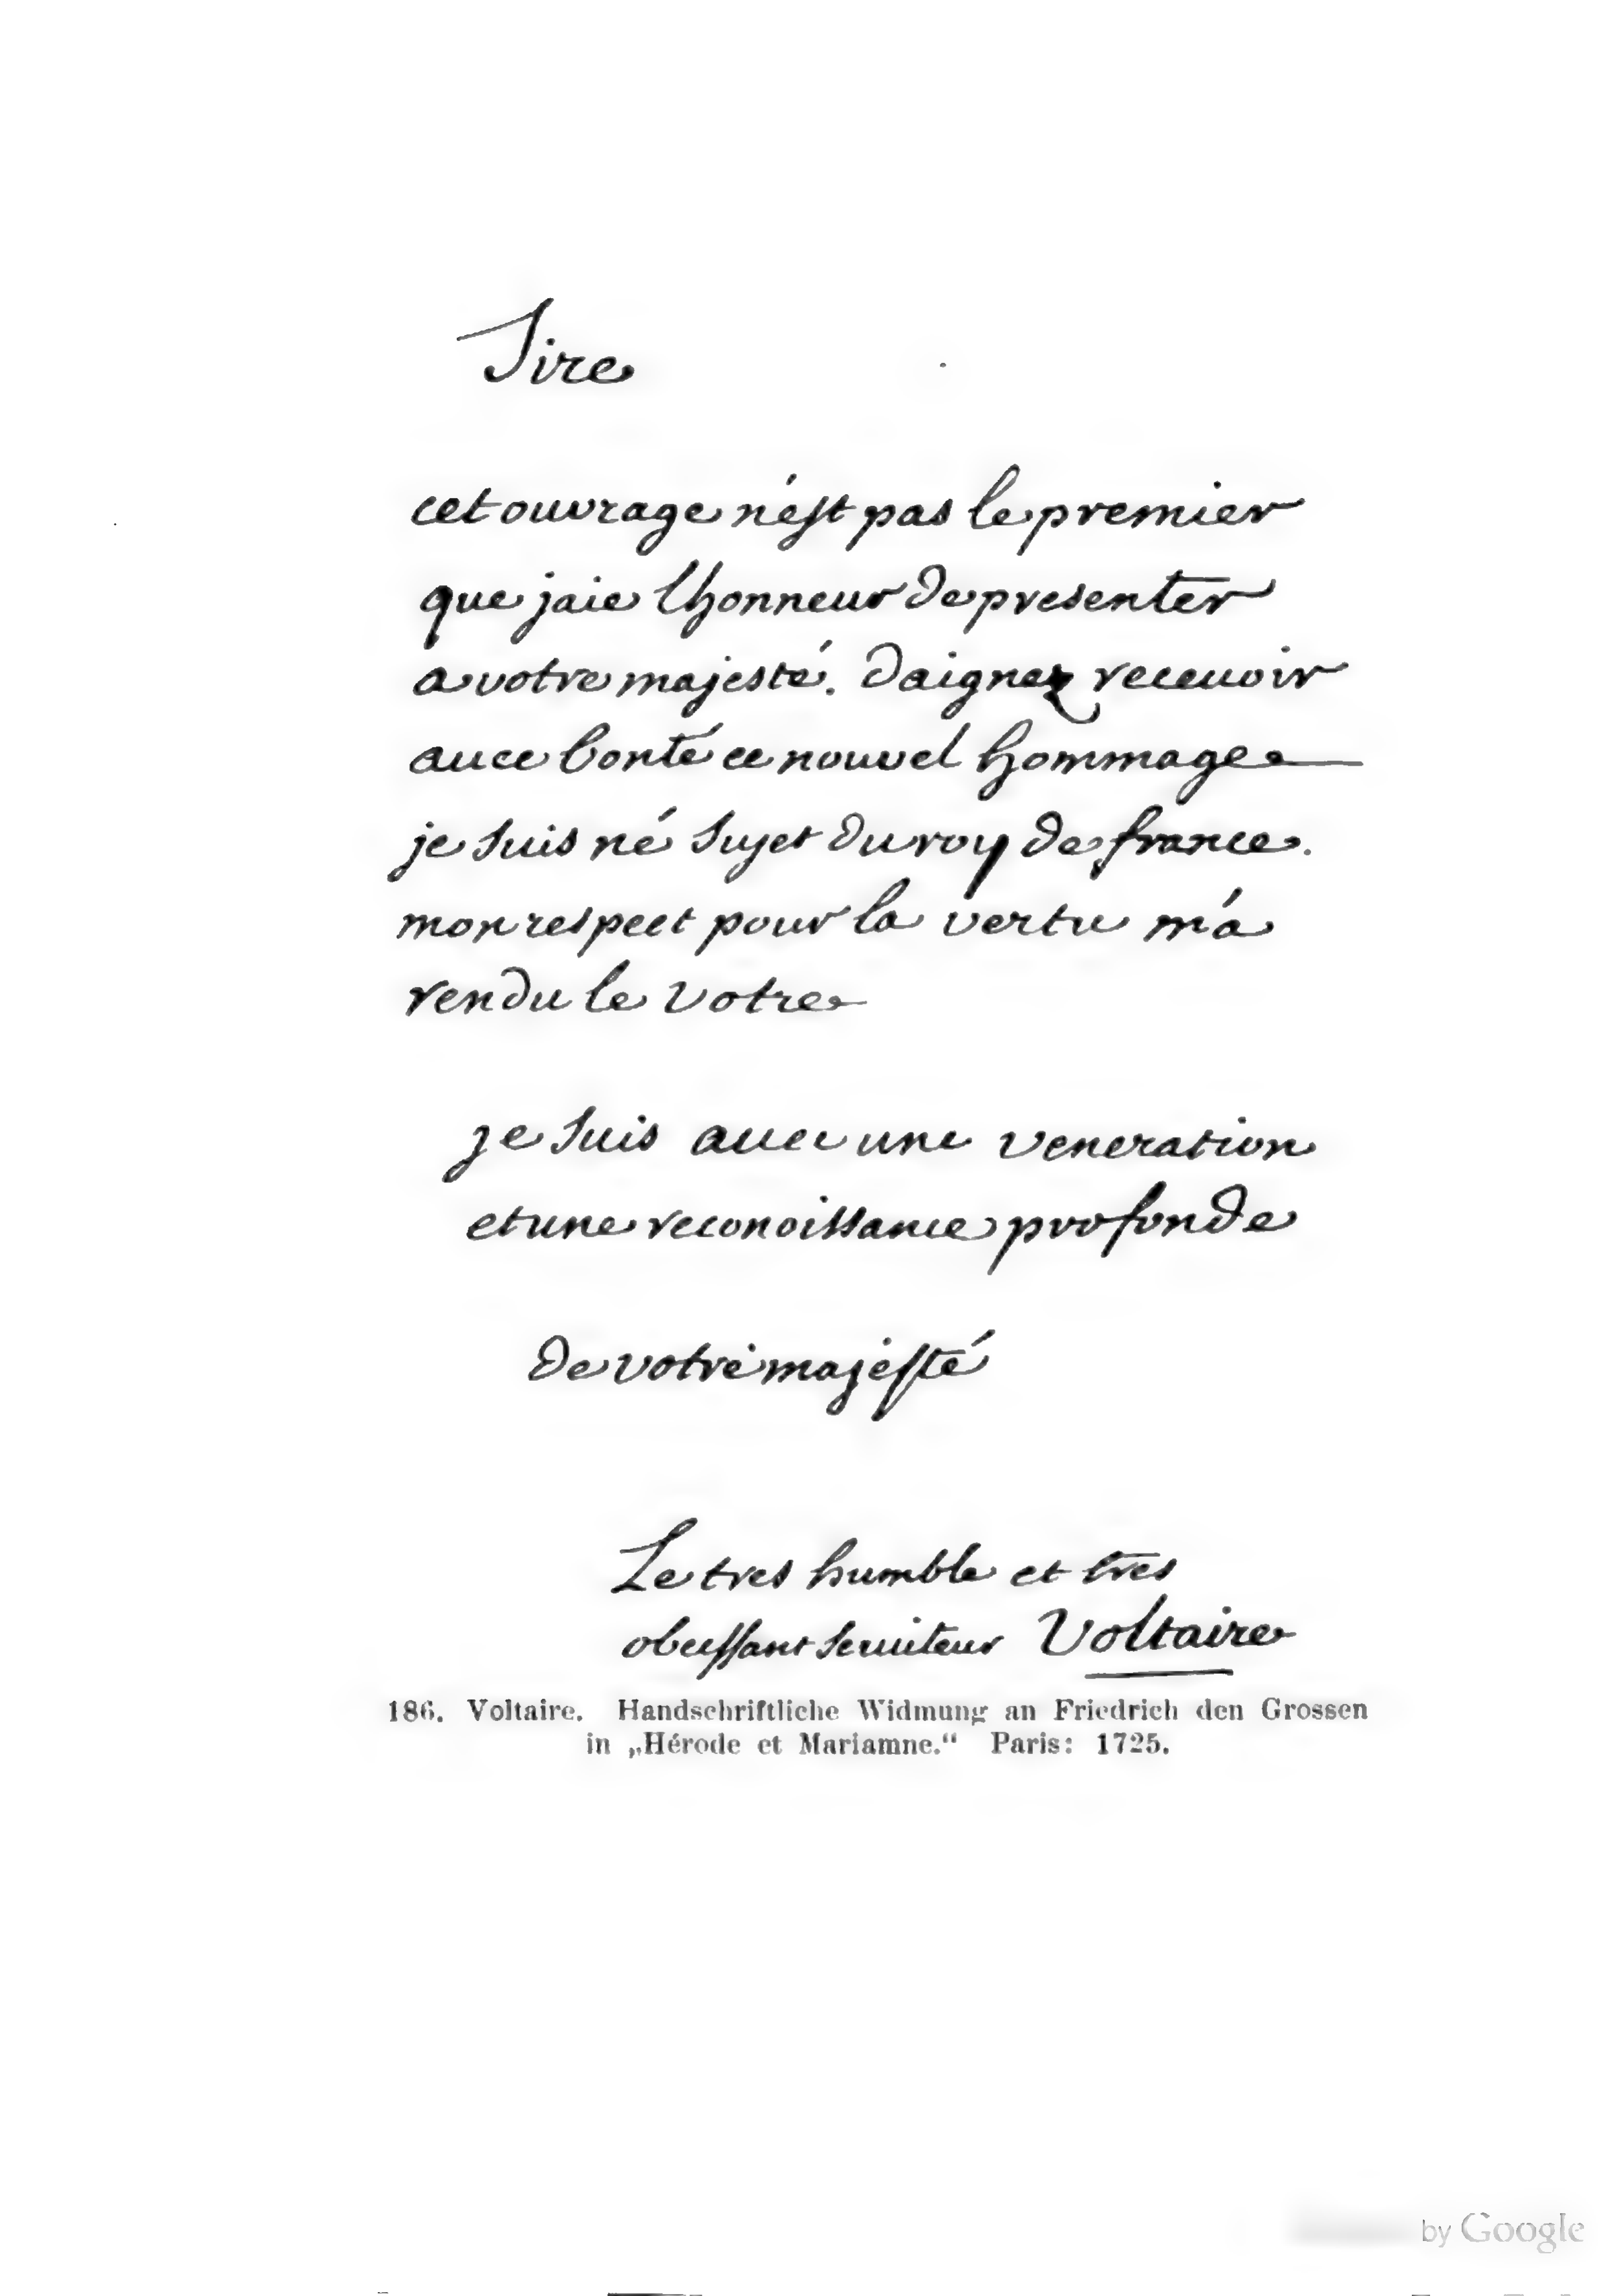 Sire
cet ouvrage n'est pas le premier
que jaie lhonneur de presenter
a votre majesté. daignez receuoir
auec bonté ce nouuel hommage
je suis né sujet du roy de france.
mon respect pour la vertu m'a
rendu le votre
je suis auec une veneration
et une reconoissance profonde
de votre majesté
Le tres humble et tres
obeissant seruiteur Voltaire
186. Voltaire. Handschriftliche Widmung an Friedrich den Grossen
in „Hérode et Mariamne.“ Paris: 1725.
by Google